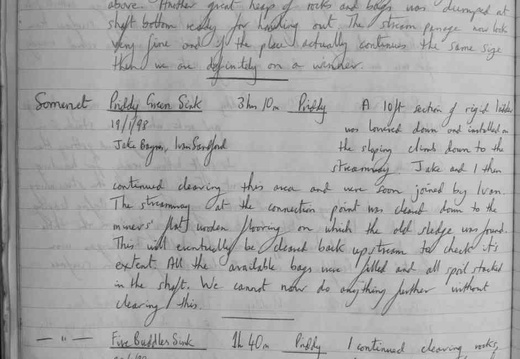 above. Another great heap of rocks and bags was dumped at
shaft bottom ready for hauling out. The stream passage now looks
very fine and if the place actually continues the same size
then we are definitely on a winner.
Somerset Priddy Green Sink 3hrs 10m Priddy A 10ft section of rigid ladder
19/1/98 was lowered down and installed on
Jake Baynes, Ivan Sandford the sloping climb down to the
streamway. Jake and I then
continued clearing this area and were soon joined by Ivan.
The streamway at the connection point was cleared down to the
miners' flat wooden flooring on which the old sledge was found.
This will eventually be cleared back upstream to check its
extent. All the available bags were filled and all spoil stacked
in the shaft. We cannot now do anything further without
clearing this.
— " — Five Buddles Sink 1h 40m Priddy I continued clearing rocks,